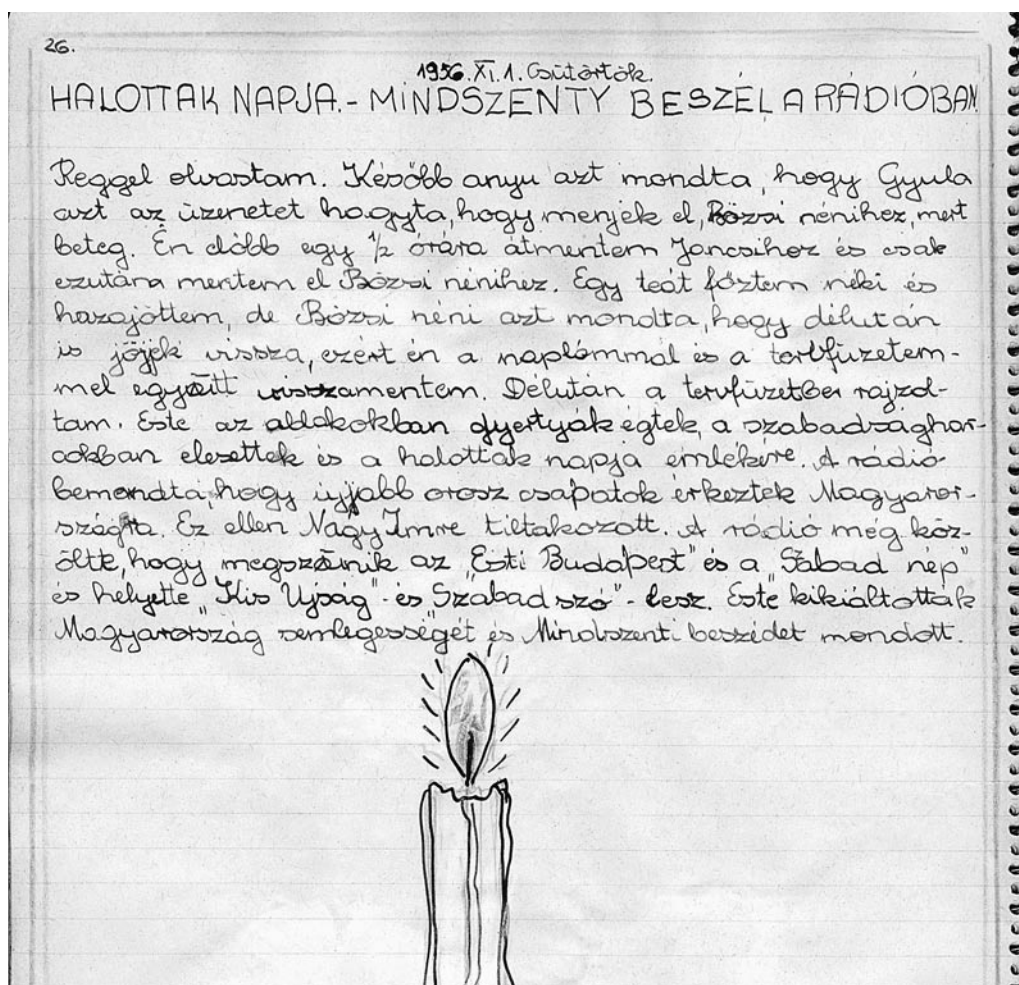 26.
1956. XI. 1. Csütörtök.
HALOTTAK NAPJA. - MINDSZENTY BESZÉL A RÁDIÓBAN
Reggel olvastam. Később anyu azt mondta, hogy Gyula
azt az üzenetet hagyta, hogy menjek el, Bözsi nénihez, mert
beteg. Én előbb egy 1/2 órára átmentem Jancsihoz és csak
ezutára mentem el Bözsi nénihez. Egy teát főztem néki és
hazajöttem, de Bözsi néni azt mondta, hogy délután
is jöjjek vissza, ezért én a naplómmal és a tervfüzetem-
mel együtt visszamentem. Délután a tervfüzetbe rajzol-
tam. Este az ablakokban gyertyák égtek, a szabadsághar-
cokban elesettek és a halottak napja emlékére. A rádió
bemondta, hogy újjabb orosz csapatok érkeztek Magyaror-
szágra. Ez ellen Nagy Imre tiltakozott. A rádió még köz-
ölte, hogy megszűnik az "Esti Budapest" és a "Szabad nép"
és helyette "Kis Ujság" - és "Szabad szó" - lesz. Este kikiáltották
Magyarország semlegességét és Mindszenti beszédet mondott.